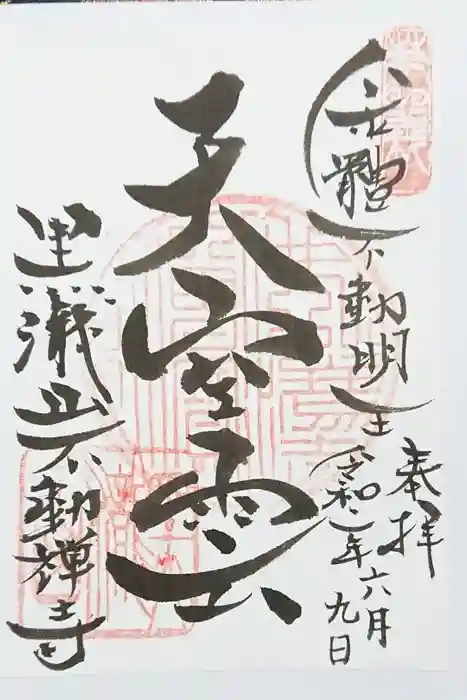 奉拝
體不動明王
令和二年六月九日
天空雲
黒瀧山不動禅寺